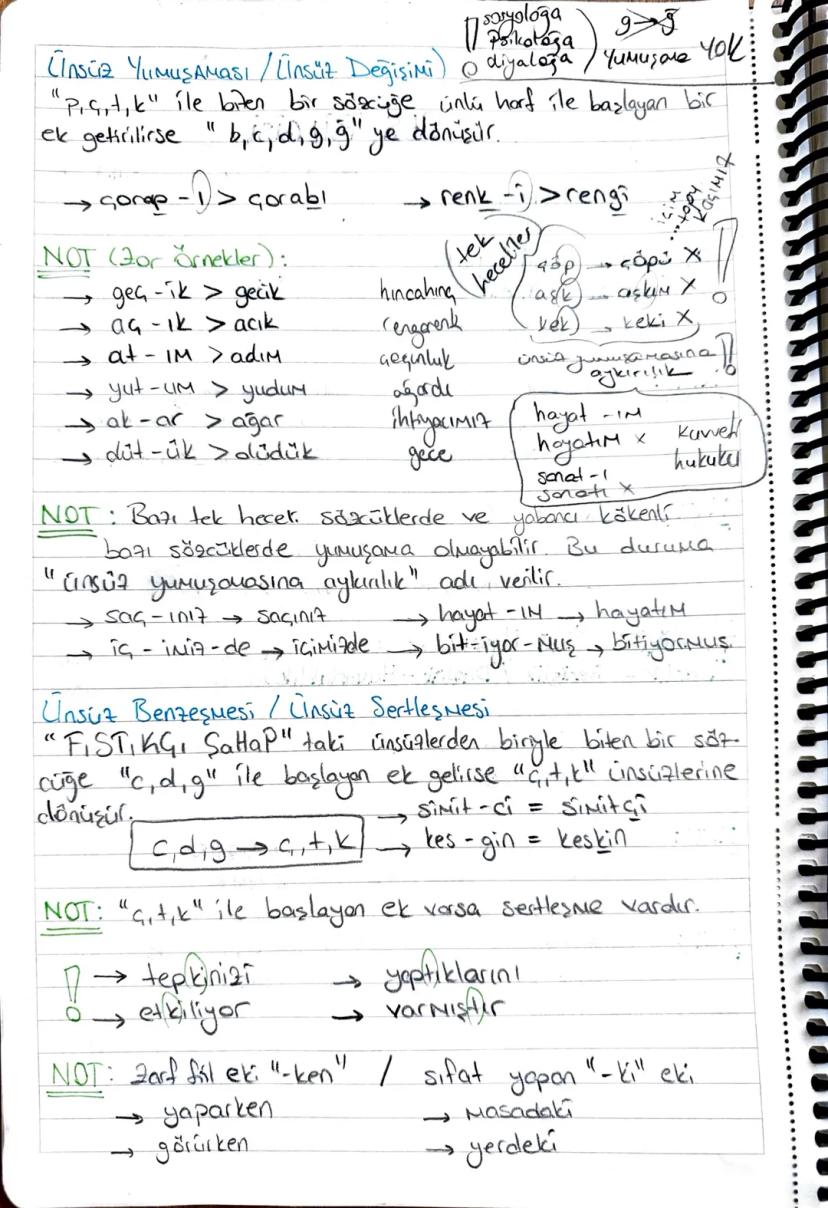 ! sosyoloğa
psikoloğa
diyaloğa
g → ğ
Yumuşama YOK
Ünsüz Yumuşaması / Ünsüz Değişimi
"p, ç, t, k" ile biten bir sözcüğe ünlü harf ile başlayan bir
ek getirilirse "b, c, d, g, ğ" ye dönüşür.
→ çorap - ı > çorabı → renk - i > rengi
içim
...topu
kaçımız
NOT (Zor Örnekler):
→ geç - ik > gecik
→ aç - ık > acık
→ at - ım > adım
→ yut - um > yudum
→ ak - ar > ağar
→ düt - ük > düdük
hıncahınç
rengarenk
ağardı
ihtiyacımız
gece
tek
heceliler
çöp → çöpü X
aşk → aşkım X
kek → keki X
!
ünsüz yumuşamasına !!
aykırılık
hayat - ım
hayatım x
sanat - ı
sanatı x
kuvveti
hukuku
NOT : Bazı tek hecel. sözcüklerde ve yabancı kökenli
bazı sözcüklerde yumuşama olmayabilir. Bu duruma
"ünsüz yumuşamasına aykırılık" adı verilir.
→ saç - ınız → saçınız → hayat - ım → hayatım
→ iç - imiz - de → içimizde → bit - iyor - muş → bitiyormuş
Ünsüz Benzeşmesi / Ünsüz Sertleşmesi
"FISTIKÇI ŞaHaP" taki ünsüzlerden biriyle biten bir söz-
cüğe "c, d, g" ile başlayan ek gelirse "ç, t, k" ünsüzlerine
dönüşür.
→ simit - ci = simitçi
c, d, g → ç, t, k
→ kes - gin = keskin
NOT: "ç, t, k" ile başlayan ek varsa sertleşme vardır.
! → tepkinizi → yaptıklarını
→ etkiliyor → varmıştır
NOT: Zarf fiil eki "-ken" / sıfat yapan "-ki" eki
→ yaparken → masadaki
→ görürken → yerdeki